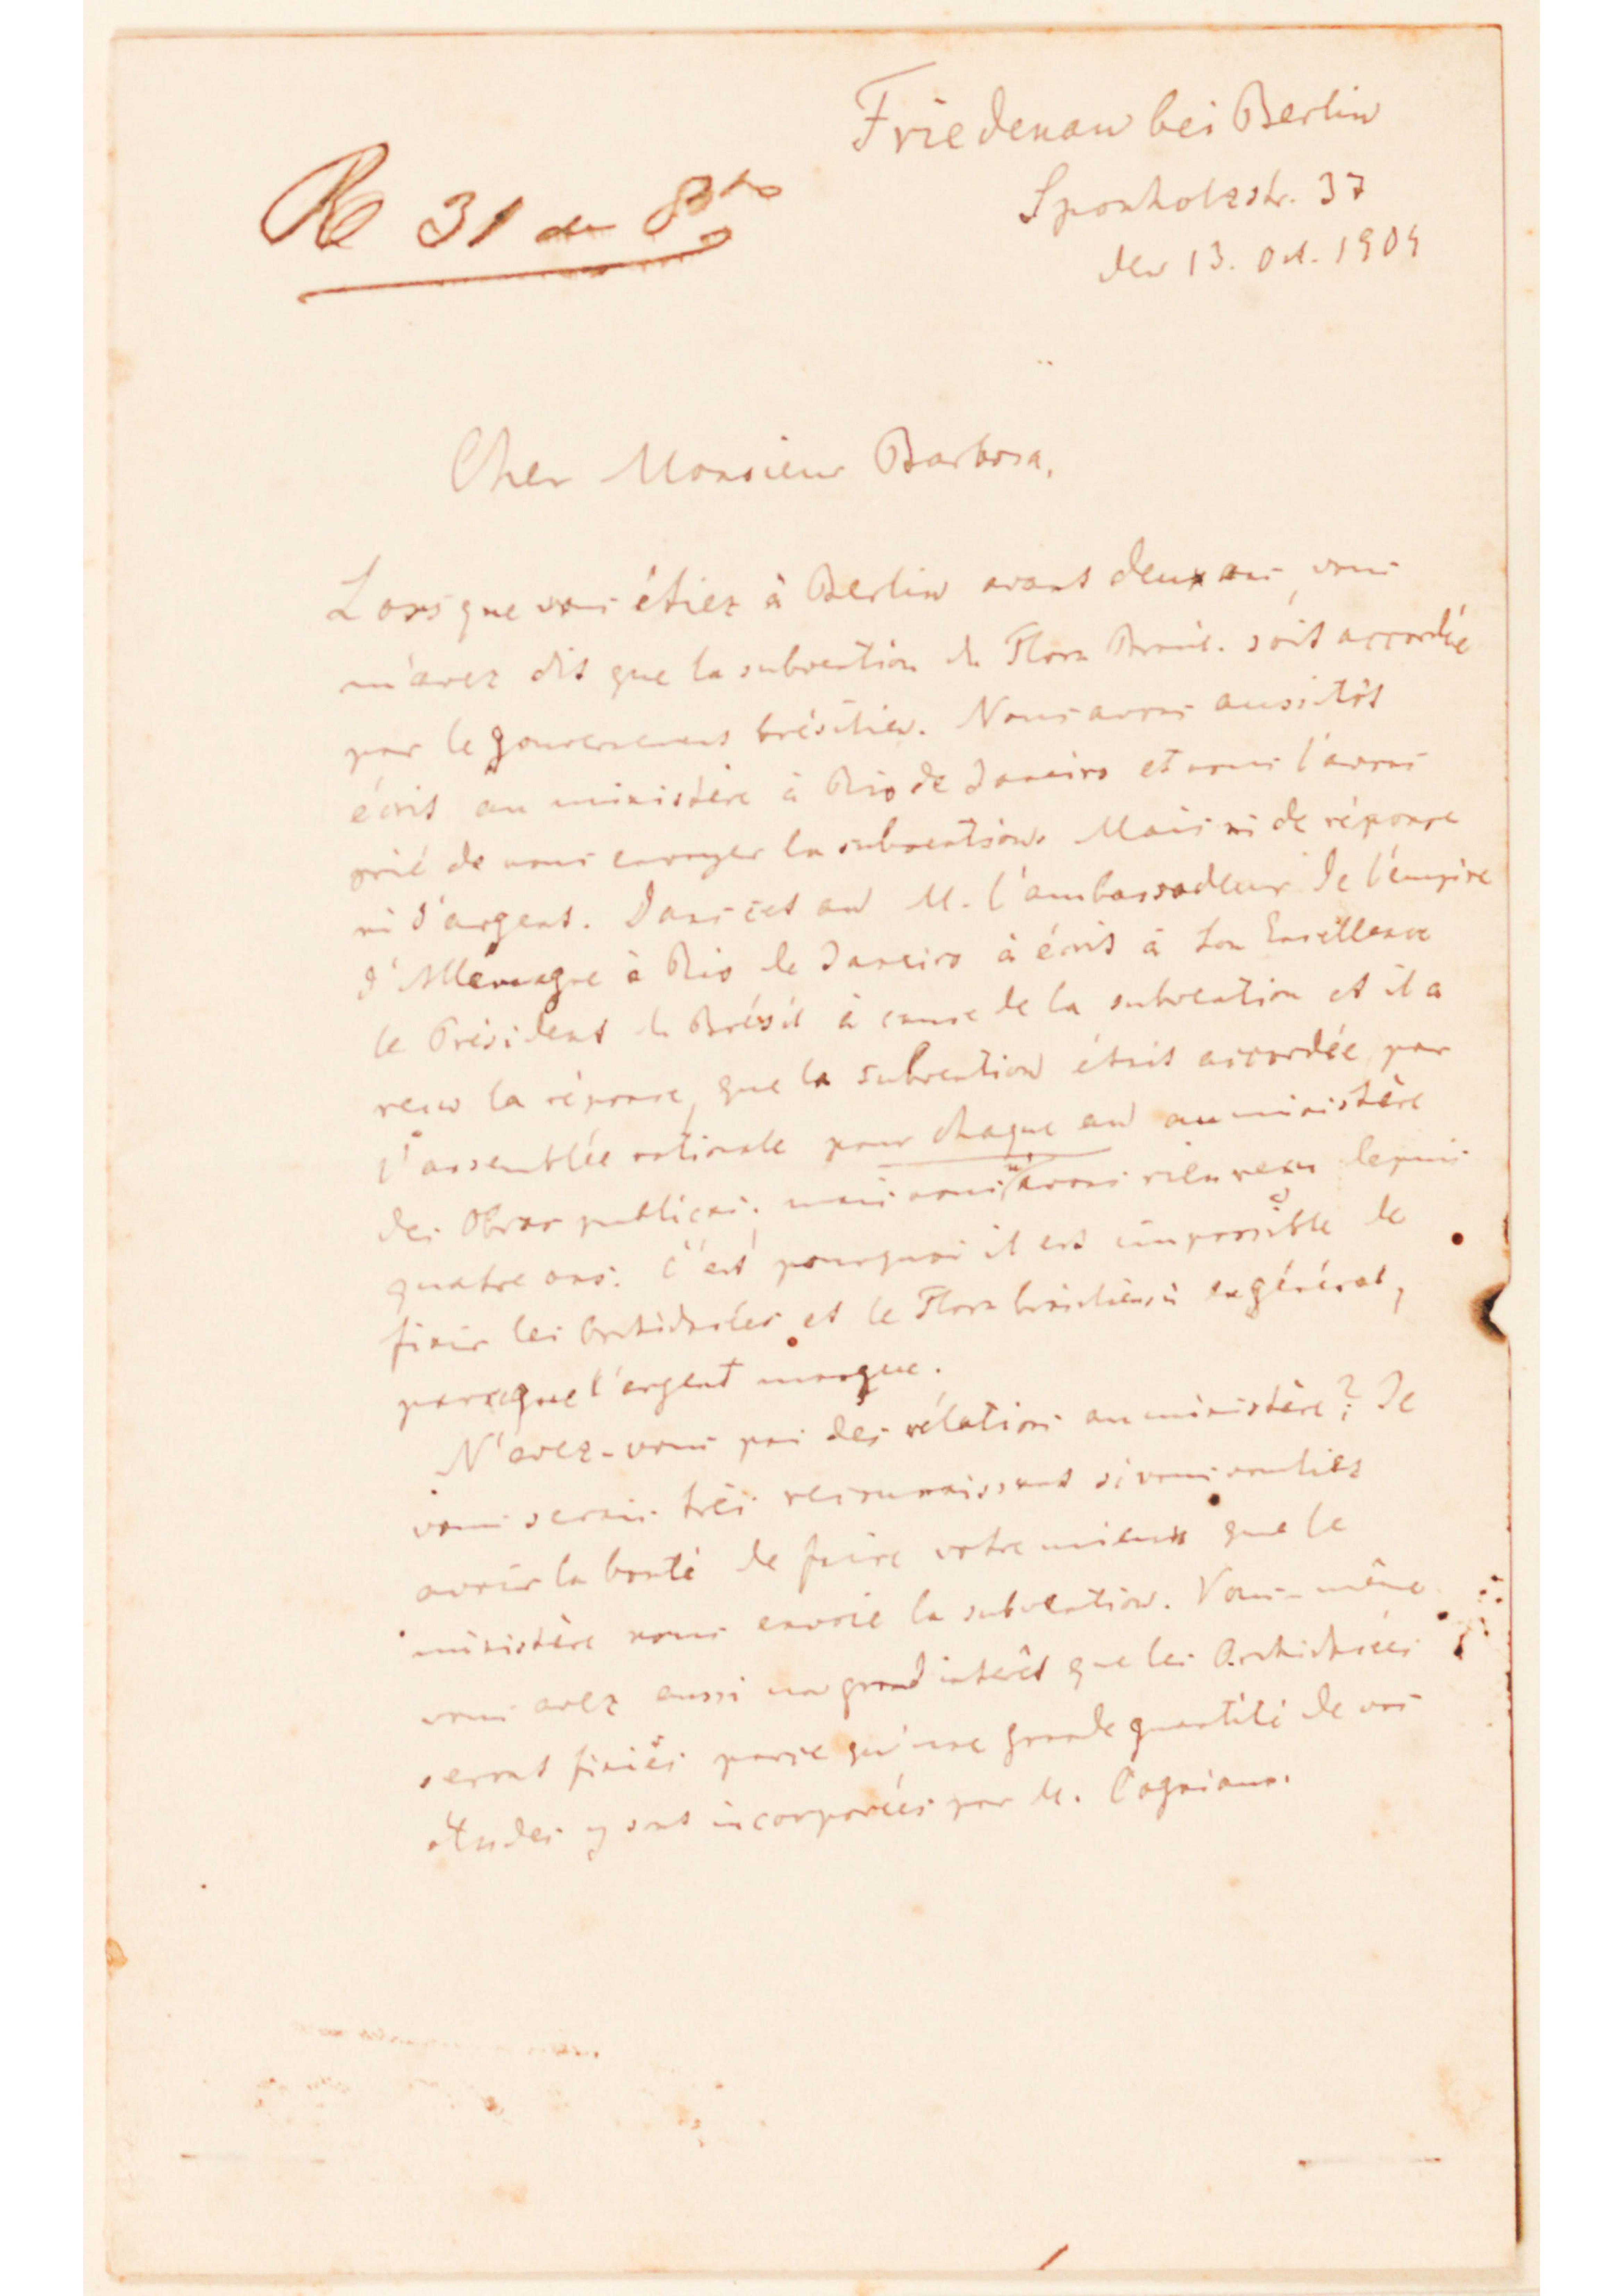 Friedenau bei Berlin
Sponholzstr. 37
den 13. Oct. 1904
Re 31 de 8bro
Cher Monsieur Barbosa,
Lorsque vous étiez à Berlin avant deux ans, vous
m'avez dit que la subvention du Flora Brasil. soit accordée
par le gouvernement brésilien. Nous avons aussitôt
écrit au ministère à Rio de Janeiro et nous l'avons
prié de nous envoyer la subvention. Mais ni de réponse
ni d'argent. Dans cet an M. l'ambassadeur de l'empire
d'Allemagne à Rio de Janeiro à écrit à Son Excellence
le Président du Brésil à cause de la subvention et il a
reçu la réponse, que la subvention était accordée par
l'assemblée nationale pour chaque an au ministère
des Obras publicas; mais nous n'avons rien reçu depuis
quatre ans. C'est pourquoi il est impossible de
finir les Orchidacées et le Flora brasiliensis en général,
parceque l'argent manque.
N'avez-vous pas des rélations au ministère? Je
vous serais très reconnaissant si vous vouliez
avoir la bonté de faire votre mieux que le
ministère nous envoie la subvention. Vous-même
vous avez aussi un grand intérêt que les Orchidacées
seront finiés parce qu'une grande quantité de vos
études y sont incorporées par M. Cogniaux.